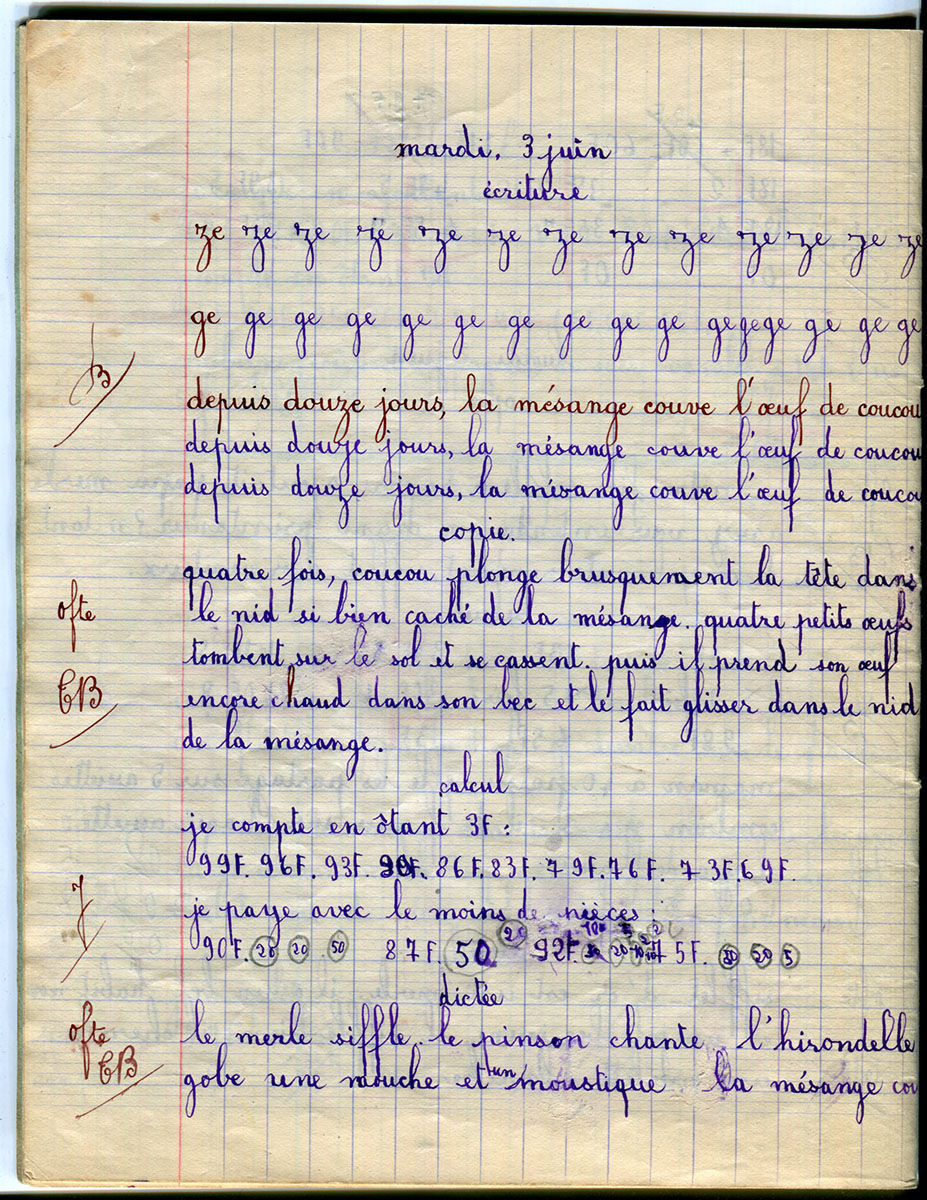 mardi, 3 juin
écriture
ze ze ze ze ze ze ze ze ze ze ze ze ze
ge ge ge ge ge ge ge ge ge ge ge ge ge ge ge ge
B
depuis douze jours, la mésange couve l'œuf de coucou
depuis douze jours, la mésange couve l'œuf de coucou
depuis douze jours, la mésange couve l'œuf de couco
copie.
quatre fois, coucou plonge brusquement la tête dans
ofte
le nid si bien caché de la mésange. quatre petits œufs
tombent sur le sol et se cassent. puis il prend son œuf
TB
encore chaud dans son bec et le fait glisser dans le nid
de la mésange.
calcul
je compte en ôtant 3F:
99F. 96F. 93F. 90F. 86F. 83F. 79F. 76F. 73F. 69F.
7
je paye avec le moins de pièces:
90F. 20 20 50 87F. 50 20 92F. 75F. 50 20 5
dictée
ofte
le merle siffle. le pinson chante. l'hirondelle
TB
gobe une mouche et un moustique. la mésange cou